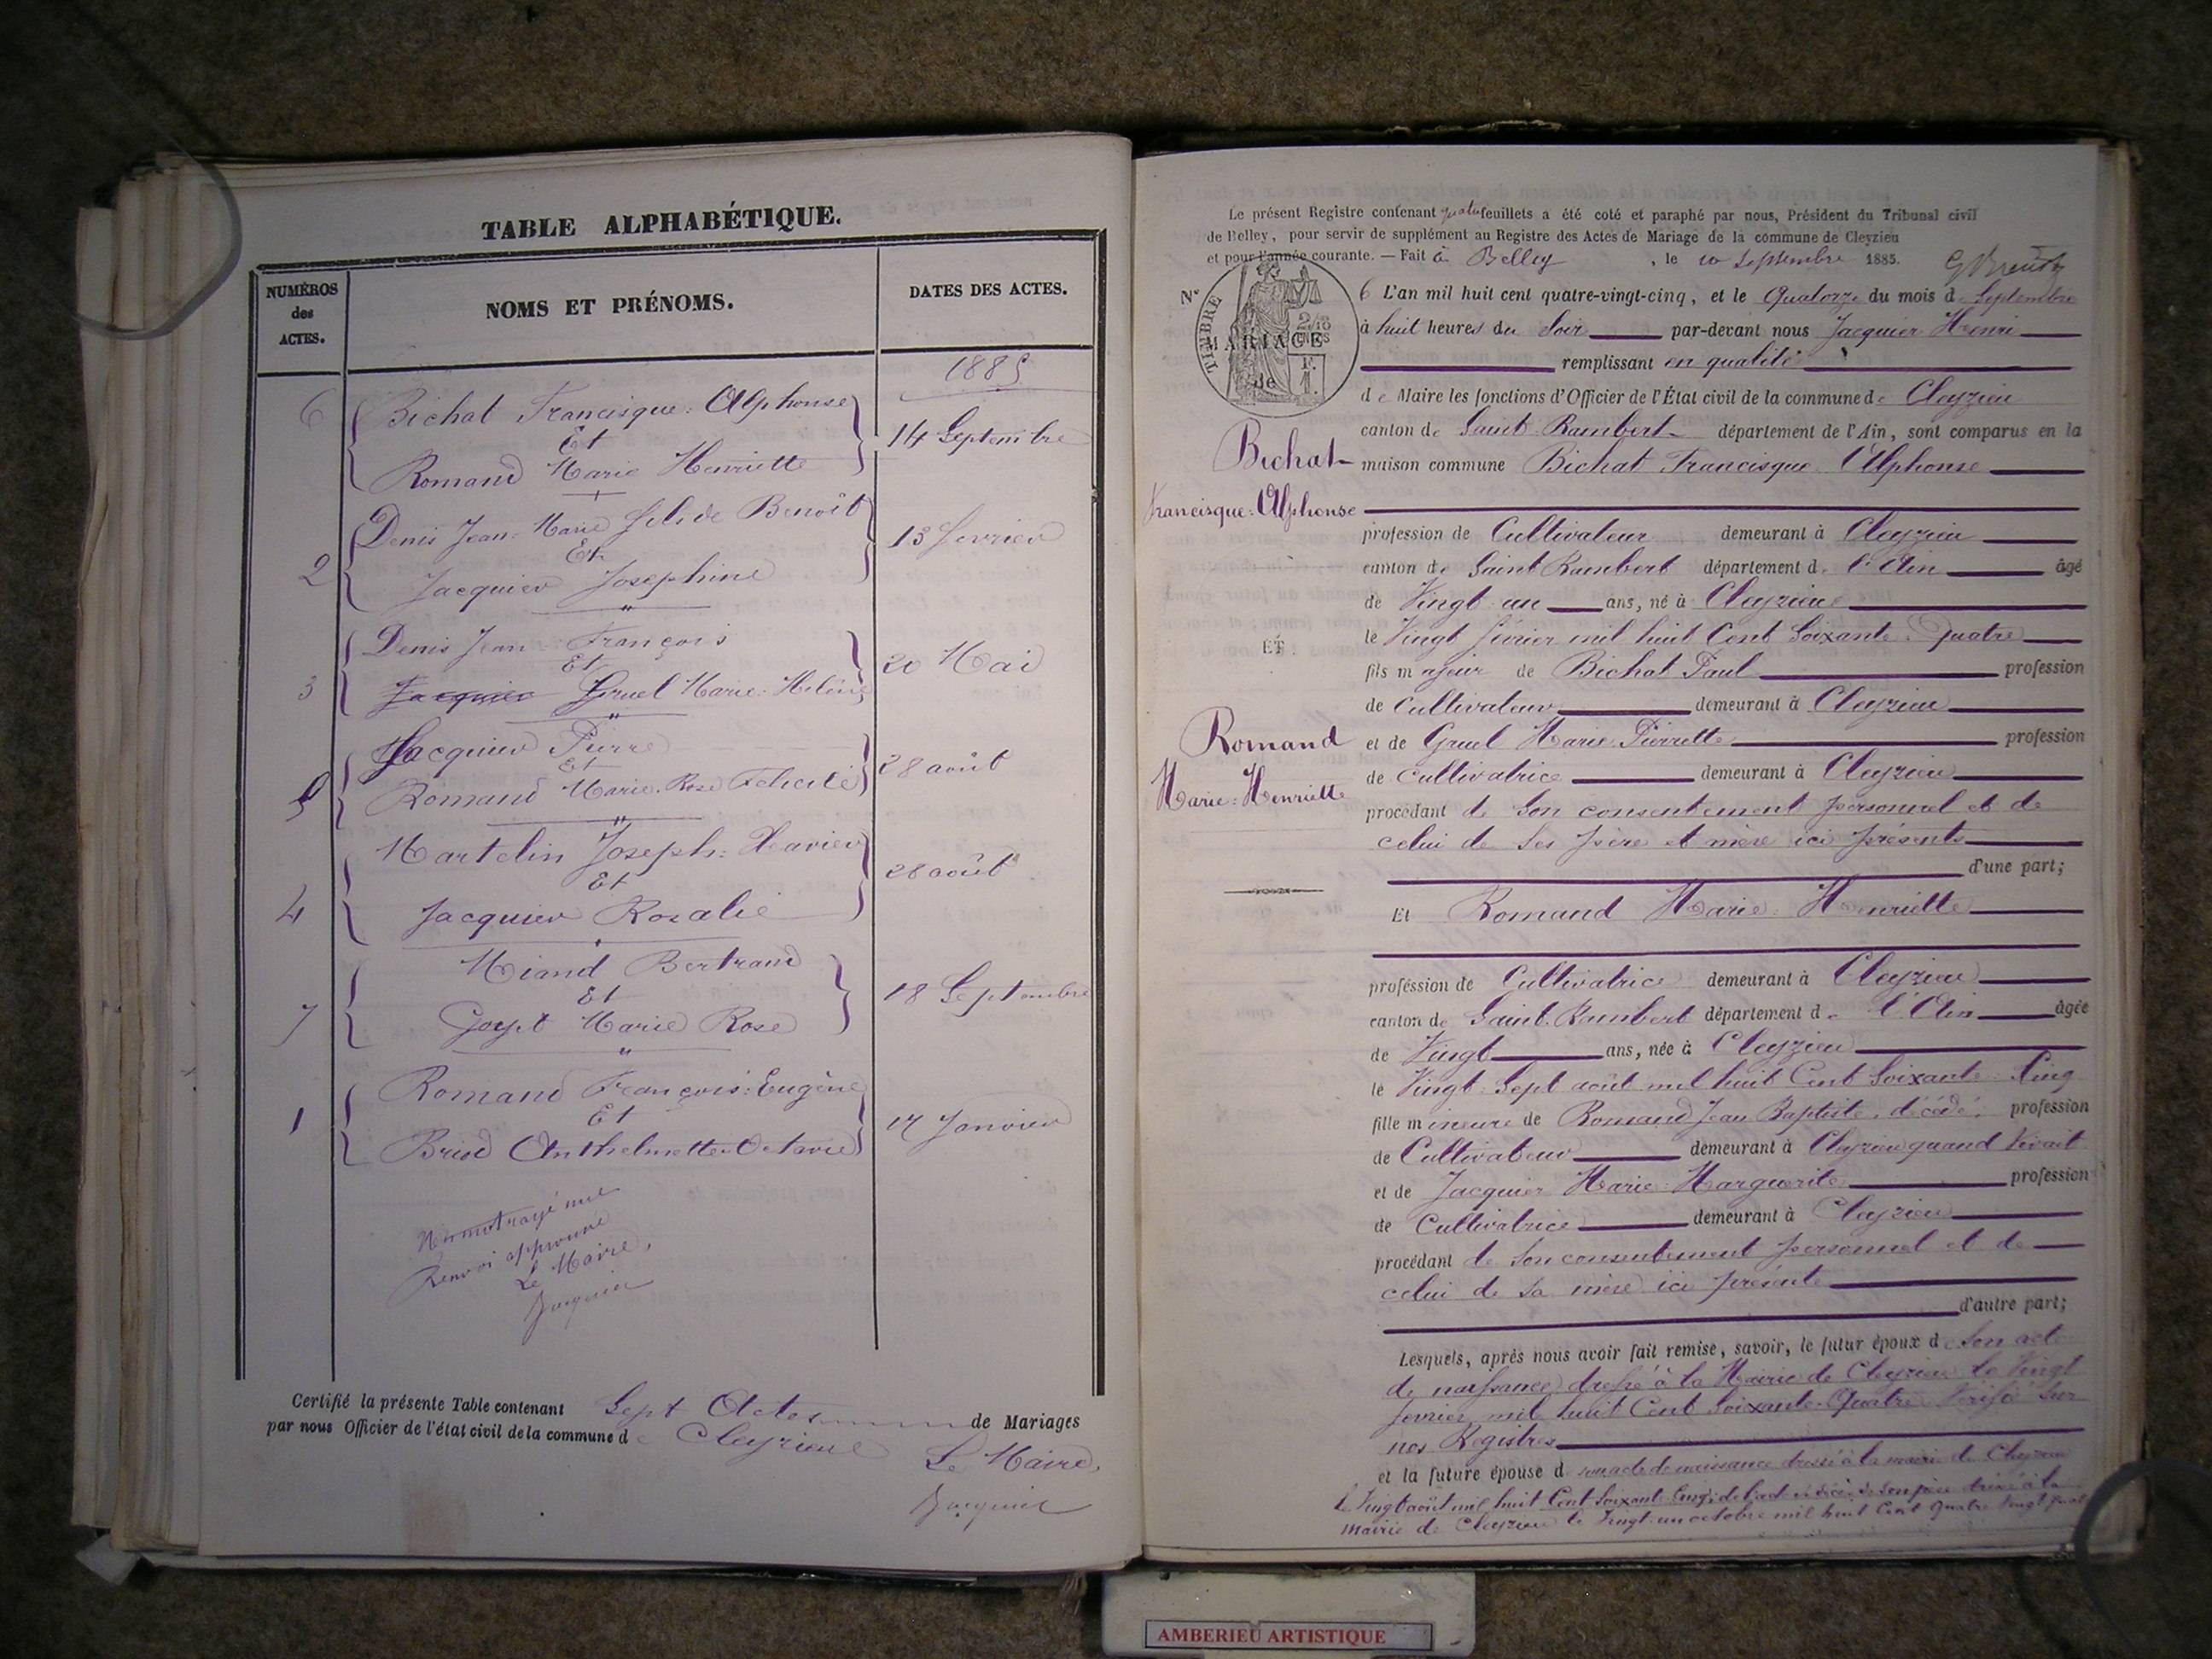 TABLE ALPHABÉTIQUE.
NUMÉROS
des
ACTES.
NOMS ET PRÉNOMS.
DATES DES ACTES.
1885
6
Bichat Francisque-Alphonse
Et
Romand Marie Henriette
14 Septembre
2
Denis Jean-Marie fils de Benoît
Et
Jacquier Joséphine
13 février
3
Denis Jean François
Et
Jacquier Gruel Marie-Hélène
20 Mai
5
Jacquier Pierre
Et
Romand Marie-Rose Félicité
28 août
4
Martelin Joseph-Xavier
Et
Jacquier Rosalie
28 août
7
Miand Bertrand
Et
Goyet Marie Rose
18 Septembre
1
Romand François-Eugène
Et
Briod Anthelmette-Octavie
17 Janvier
Un mot rayé nul
Renvoi approuvé
Le Maire,
Jacquier
Certifié la présente Table contenant Sept Actes de Mariages
par nous Officier de l'état civil de la commune de Cleyzieu
Le Maire,
Jacquier
Le présent Registre contenant quatre feuillets a été coté et paraphé par nous, Président du Tribunal civil
de Belley, pour servir de supplément au Registre des Actes de Mariage de la commune de Cleyzieu
et pour l'année courante. — Fait à Belley, le 10 Septembre 1885.
TIMBRE
MARIAGE
de
N° 6 L'an mil huit cent quatre-vingt-cinq, et le Quatorze du mois de Septembre
à huit heures du Soir par-devant nous Jacquier Henri
remplissant en qualité
de Maire les fonctions d'Officier de l'État civil de la commune de Cleyzieu
canton de Saint-Rambert département de l'Ain, sont comparus en la
Bichat
maison commune Bichat Francisque Alphonse
Francisque-Alphonse
profession de Cultivateur demeurant à Cleyzieu
canton de Saint Rambert département de l'Ain âgé
de Vingt-un ans, né à Cleyzieu
le Vingt février mil huit Cent Soixante-Quatre
ET
fils majeur de Bichat Paul profession
de Cultivateur demeurant à Cleyzieu
Romand
et de Gruel Marie Pierrette profession
de Cultivatrice demeurant à Cleyzieu
Marie-Henriette
procédant de Son consentement personnel et de
celui de ses père et mère ici présents
d'une part;
Et Romand Marie-Henriette
profession de Cultivatrice demeurant à Cleyzieu
canton de Saint-Rambert département de l'Ain âgée
de Vingt ans, née à Cleyzieu
le Vingt-Sept août mil huit Cent Soixante-Cinq
fille mineure de Romand Jean Baptiste, décédé, profession
de Cultivateur demeurant à Cleyzieu quand vivait
et de Jacquier Marie-Marguerite profession
de Cultivatrice demeurant à Cleyzieu
procédant de Son consentement personnel et de
celui de sa mère ici présente
d'autre part;
Lesquels, après nous avoir fait remise, savoir, le futur époux de Son acte
de naissance dressé à la Mairie de Cleyzieu le Vingt
février mil huit Cent Soixante-Quatre Vérifié Sur
nos Registres
et la future épouse de son acte de naissance dressé à la mairie de Cleyzieu
le Vingt août mil huit Cent Soixante-Cinq; de l'acte de décès de Son père dressé à la
mairie de Cleyzieu le Vingt-un octobre mil huit Cent Quatre Vingt
AMBERIEU ARTISTIQUE